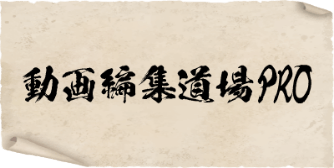 動画編集道場PRO